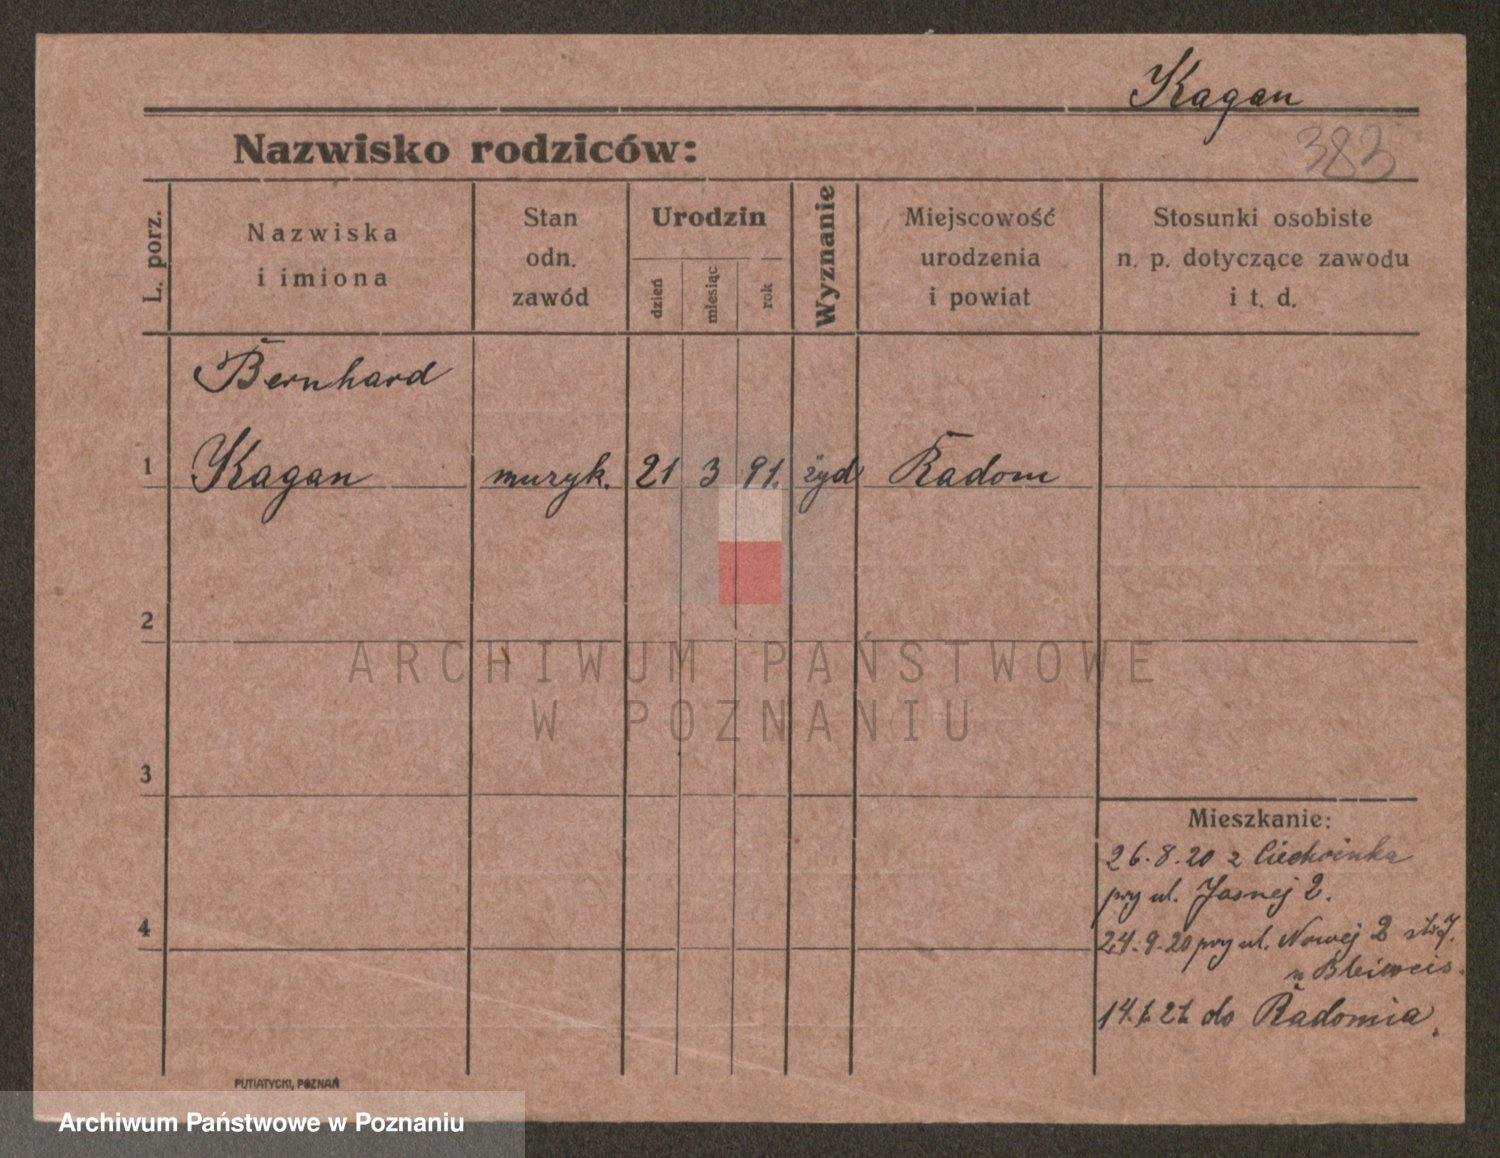 Kagan
383
Nazwisko rodziców:
L. porz.
Nazwiska
i imiona
Stan
odn.
zawód
Urodzin
dzień
miesiąc
rok
Wyznanie
Miejscowość
urodzenia
i powiat
Stosunki osobiste
n. p. dotyczące zawodu
i t. d.
Bernhard
1 Kagan muzyk. 21 3 91. żyd Radom
2
ARCHIWUM PAŃSTWOWE
W POZNANIU
3
Mieszkanie:
26.8.20 z Ciechocinka
przy ul. Jasnej 2.
4
24.9.20 przy ul. Nowej 2
u Bleiweis.
14.1.21 do Radomia.
PUTIATYCKI, POZNAŃ
Archiwum Państwowe w Poznaniu